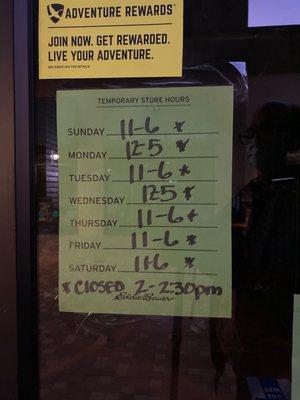 ADVENTURE REWARDS™
JOIN NOW. GET REWARDED.
LIVE YOUR ADVENTURE.
SEE ASSOCIATE FOR DETAILS.
TEMPORARY STORE HOURS
SUNDAY 11-6 *
MONDAY 12-5 *
TUESDAY 11-6 *
WEDNESDAY 12-5 *
THURSDAY 11-6 *
FRIDAY 11-6 *
SATURDAY 11-6 *
* CLOSED 2-2:30pm
Eddie Bauer